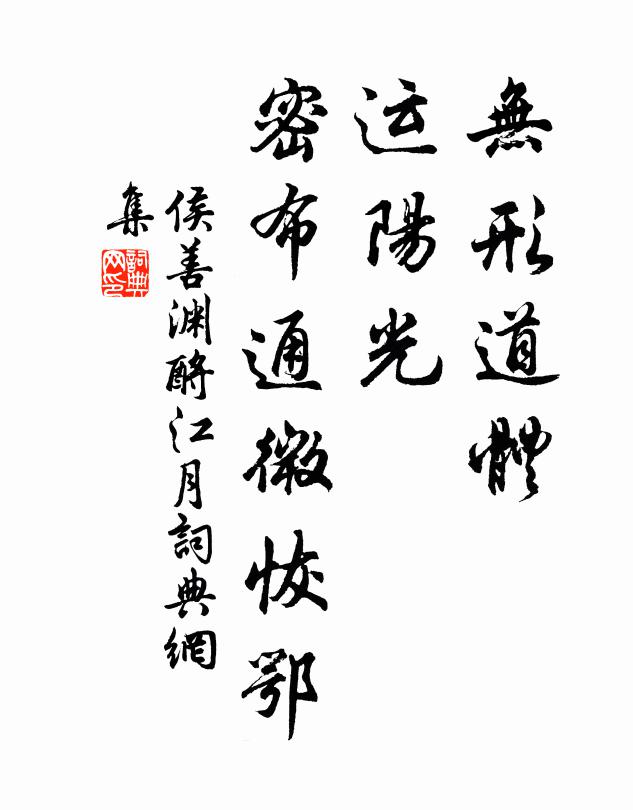 無形道體
运陽光
密布通微恢鄂
侯善渊酹江月詞典網
集
詞典网印